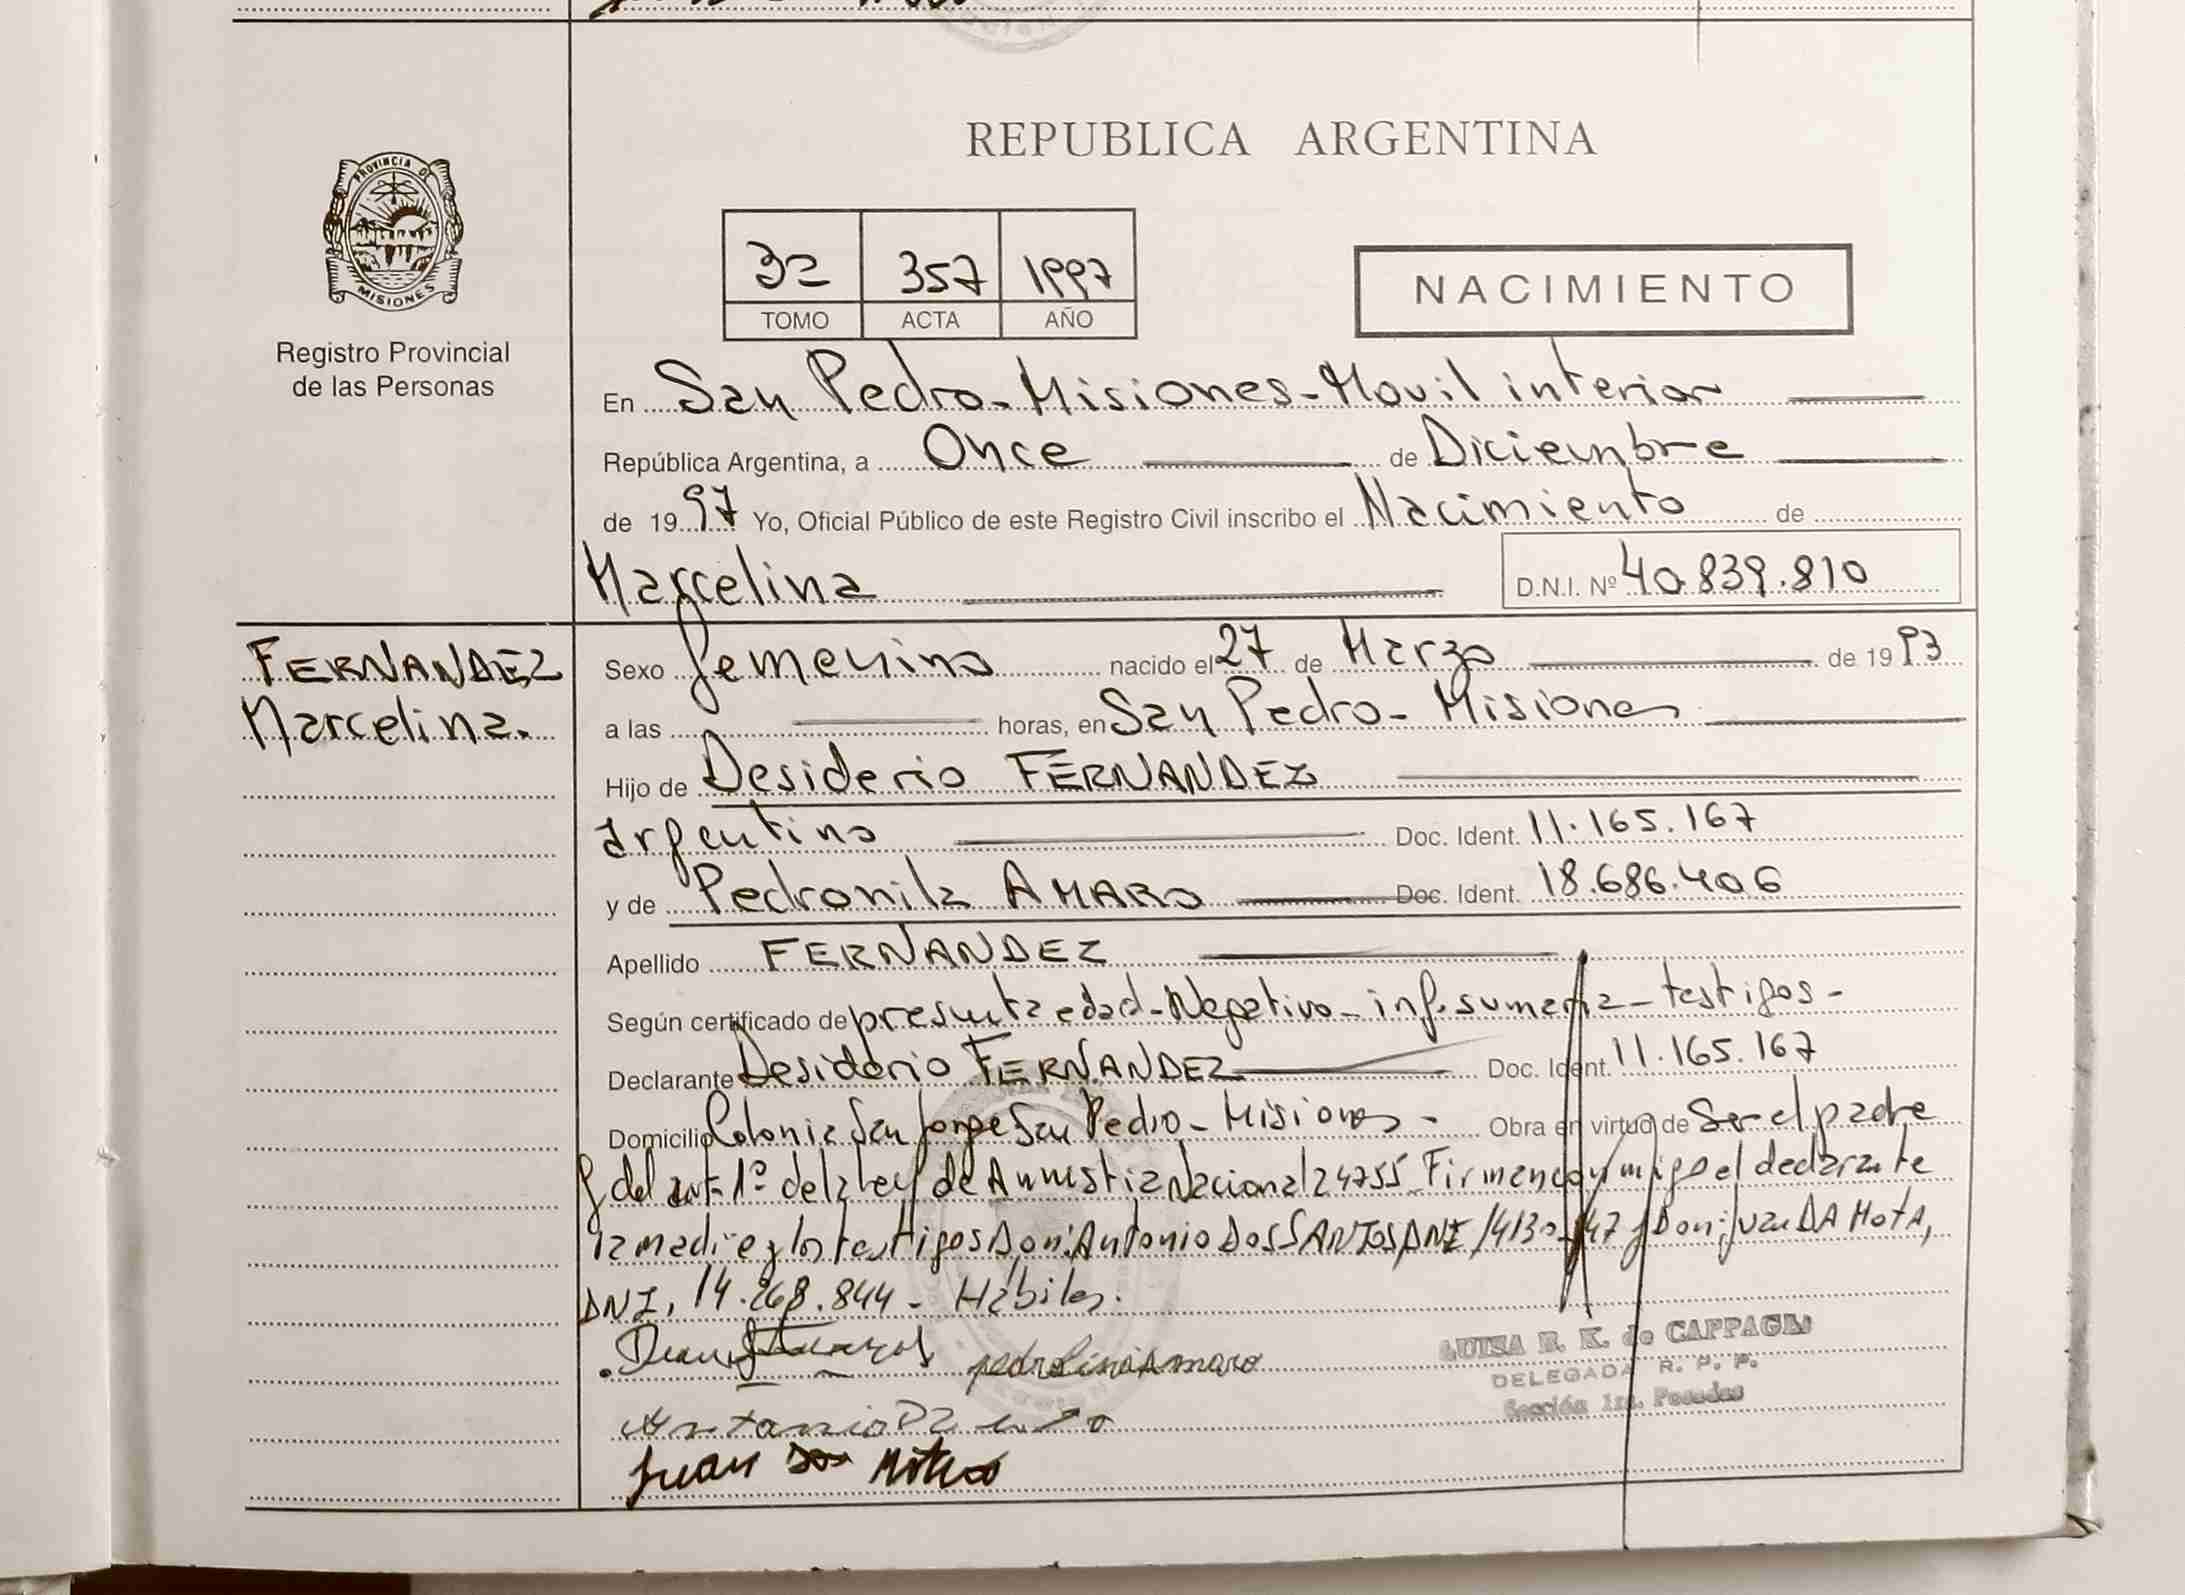 REPUBLICA ARGENTINA
PROVINCIA DE
MISIONES
Registro Provincial
de las Personas
32 357 1997
TOMO ACTA AÑO
NACIMIENTO
En San Pedro - Misiones - Movil interior
República Argentina, a Once de Diciembre
de 1997 Yo, Oficial Público de este Registro Civil inscribo el Nacimiento de
Marcelina D.N.I. Nº 40.839.810
FERNANDEZ
Marcelina.
Sexo femenino nacido el 27 de Marzo de 1993
a las horas, en San Pedro - Misiones
Hijo de Desiderio FERNANDEZ
argentino Doc. Ident. 11.165.167
y de Pedronila AMARO Doc. Ident. 18.686.406
Apellido FERNANDEZ
Según certificado de presunta edad - Negativo - inf. sumaria - testigos -
Declarante Desiderio FERNANDEZ Doc. Ident. 11.165.167
Domicilio Colonia San Jorge San Pedro - Misiones - Obra en virtud de Ser el padre
y del art. 1º de la ley de Amnistia Nacional 24755 Firman conmigo el declarante
la madre y los testigos Don: Antonio Dos SANTOS DNI y Don: Juan DA MOTA,
DNI, 14.268.844 - Hábiles.
pedrolina Amaro
Antonio
Juan
LUISA B. K. de CAPPAGLI
DELEGADA R. P. P.
Sección 1ra. Posadas